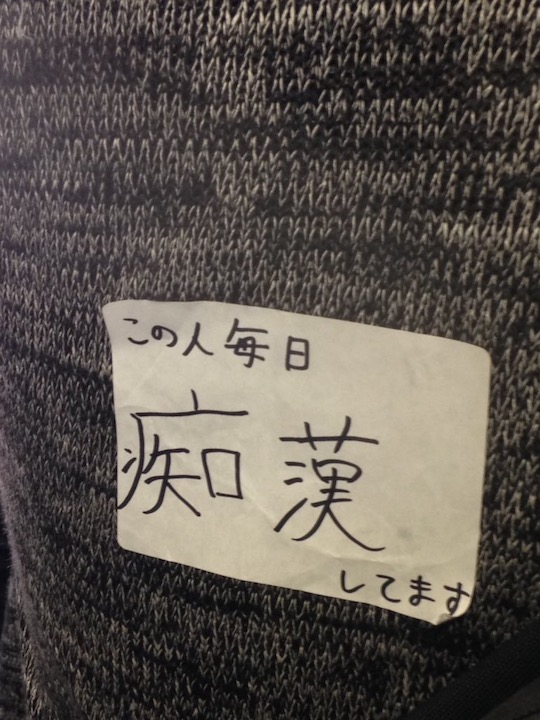 この人毎日
痴漢
してます